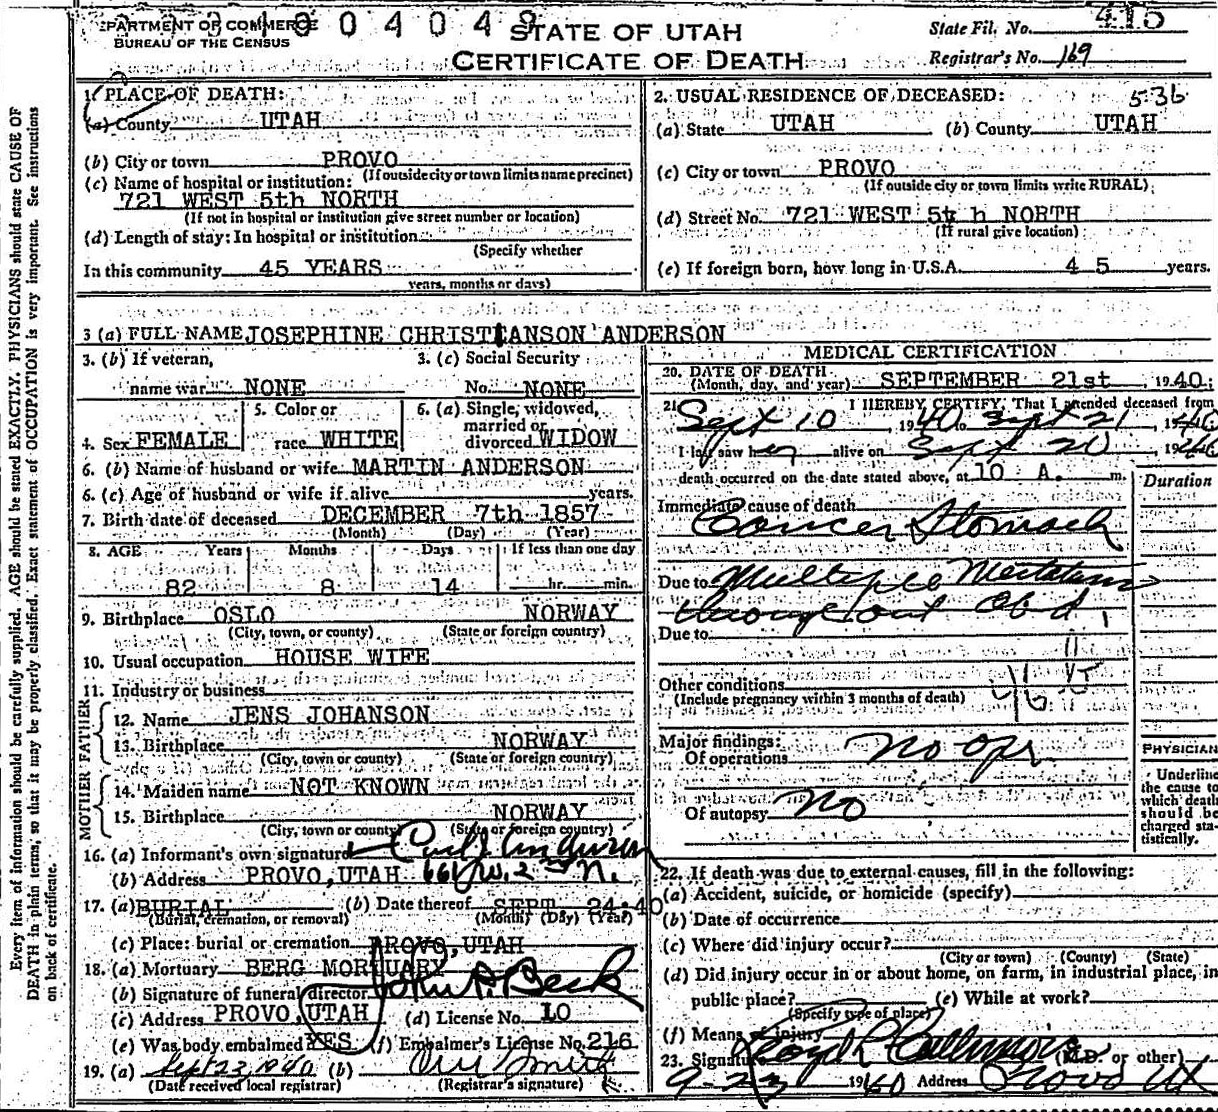 DEPARTMENT OF COMMERCE
BUREAU OF THE CENSUS
1 0 0 4 0 4 9
STATE OF UTAH
CERTIFICATE OF DEATH
State Fil. No. 415
Registrar's No. 169
1. PLACE OF DEATH:
(a) County UTAH
(b) City or town PROVO
(If outside city or town limits name precinct)
(c) Name of hospital or institution:
721 WEST 5th NORTH
(If not in hospital or institution give street number or location)
(d) Length of stay: In hospital or institution
(Specify whether
In this community 45 YEARS
years, months or days)
2. USUAL RESIDENCE OF DECEASED: 536
(a) State UTAH (b) County UTAH
(c) City or town PROVO
(If outside city or town limits write RURAL)
(d) Street No. 721 WEST 5th NORTH
(If rural give location)
(e) If foreign born, how long in U.S.A. 45 years.
3 (a) FULL NAME JOSEPHINE CHRISTIANSON ANDERSON
3. (b) If veteran,
name war NONE
3. (c) Social Security
No. NONE
4. Sex FEMALE
5. Color or
race WHITE
6. (a) Single, widowed,
married or
divorced WIDOW
6. (b) Name of husband or wife MARTIN ANDERSON
6. (c) Age of husband or wife if alive years.
7. Birth date of deceased DECEMBER 7th 1857
(Month) (Day) (Year)
8. AGE Years Months Days If less than one day
82 8 14 hr. min.
9. Birthplace OSLO NORWAY
(City, town, or county) (State or foreign country)
10. Usual occupation HOUSE WIFE
11. Industry or business
FATHER
12. Name JENS JOHANSON
13. Birthplace NORWAY
(City, town, or county) (State or foreign country)
MOTHER
14. Maiden name NOT KNOWN
15. Birthplace NORWAY
(City, town or county) (State or foreign country)
16. (a) Informant's own signature
(b) Address PROVO, UTAH 661 W. 2nd N.
17. (a) BURIAL (b) Date thereof SEPT 24-40
(Burial, cremation, or removal) (Month) (Day) (Year)
(c) Place: burial or cremation PROVO, UTAH
18. (a) Mortuary BERG MORTUARY
(b) Signature of funeral director John A. Beck
(c) Address PROVO, UTAH (d) License No. 10
(e) Was body embalmed YES (f) Embalmer's License No. 216
19. (a) Sept 23, 1940 (b) Smith
(Date received local registrar) (Registrar's signature)
MEDICAL CERTIFICATION
20. DATE OF DEATH
(Month, day, and year) SEPTEMBER 21st, 1940.
21. I HEREBY CERTIFY, That I attended deceased from
Sept 10, 1940 to Sept 21, 1940
I last saw her alive on Sept 20, 1940
death occurred on the date stated above, at 10 A. m.
Duration
Immediate cause of death
Cancer Stomach
Due to Multiple Metastasis
throughout Abd.
Due to
Other conditions 46 b
(Include pregnancy within 3 months of death)
Major findings:
Of operations no opr.
Of autopsy no
PHYSICIAN
Underline
the cause to
which death
should be
charged sta-
tistically.
22. If death was due to external causes, fill in the following:
(a) Accident, suicide, or homicide (specify)
(b) Date of occurrence
(c) Where did injury occur?
(City or town) (County) (State)
(d) Did injury occur in or about home, on farm, in industrial place, in
public place? (e) While at work?
(Specify type of place)
(f) Means of injury
23. Signature (M.D. or other)
9-23 1940 Address Provo Ut
Every item of information should be carefully supplied. AGE should be stated EXACTLY. PHYSICIANS should state CAUSE OF
DEATH in plain terms, so that it may be properly classified. Exact statement of OCCUPATION is very important. See instructions
on back of certificate.